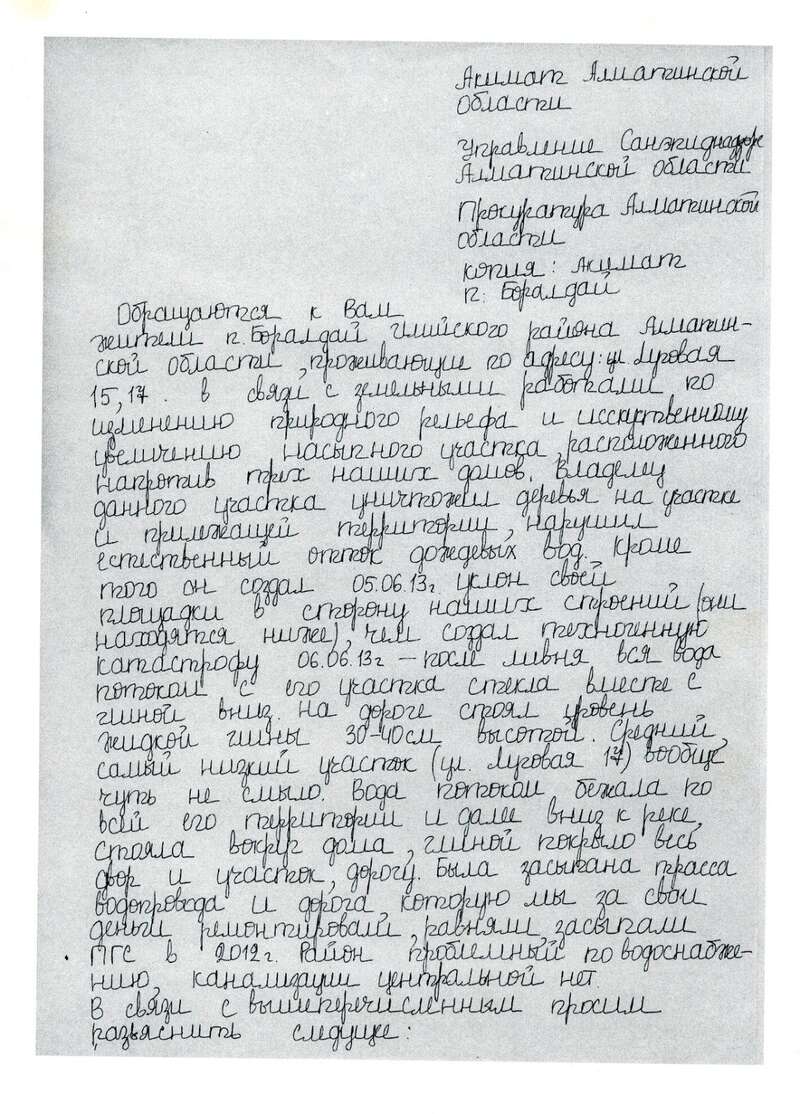 Акимат Алматинской
Области
Управление Санэпиднадзора
Алматинской области
Прокуратура Алматинской
области
копия: Акимат
п. Боралдай
Обращаются к Вам
жители п. Боралдай Илийского района Алматин-
ской области, проживающие по адресу: ул Луговая
15, 17. в связи с земельными работами по
изменению природного рельефа и исскуственному
увеличению насыпного участка, расположенного
напротив трех наших домов. Владелец
данного участка уничтожил деревья на участке
и прилежащей территории, нарушил
естественный отток дождевых вод. Кроме
того он создал 05.06.13г уклон своей
площадки в сторону наших строений (они
находятся ниже), чем создал техногенную
катастрофу 06.06.13г – после ливня вся вода
потоком с его участка стекла вместе с
глиной вниз. На дороге стоял уровень
жидкой глины 30-40см высотой. Средний,
самый низкий участок (ул. Луговая 17) вообще
чуть не смыло. Вода потоком бежала по
всей его территории и далее вниз к реке,
стояла вокруг дома, глиной покрыло весь
двор и участок, дорогу. Была засыпана трасса
водопровода и дорога которую мы за свои
деньги ремонтировали, равняли, засыпали
ПГС в 2012г. Район проблемный по водоснабже-
нию, канализации центральной нет
В связи с вышеперечисленным просим
разъяснить следуще: